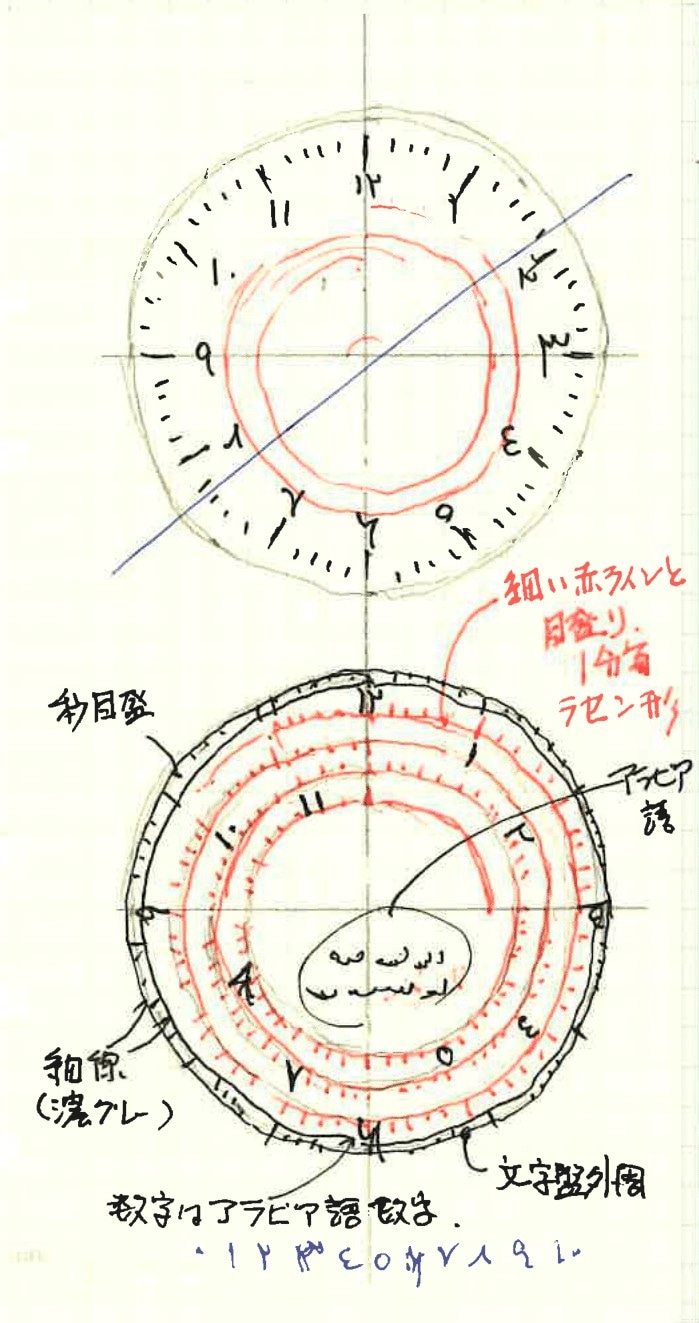 ١٢
١
٢
٣
٤
٥
٦
٧
٨
٩
١٠
١١
細い赤ラインと
目盛り.
1分毎
ラセン形
秒目盛
アラビア
語
١٢
١
٢
٣
٤
٥
٦
٧
٨
٩
١٠
١١
細線
(濃グレー)
文字盤外周
数字はアラビア語数字.
٠ ١ ٢ ٣ ٤ ٥ ٦ ٧ ٨ ٩ ١٠